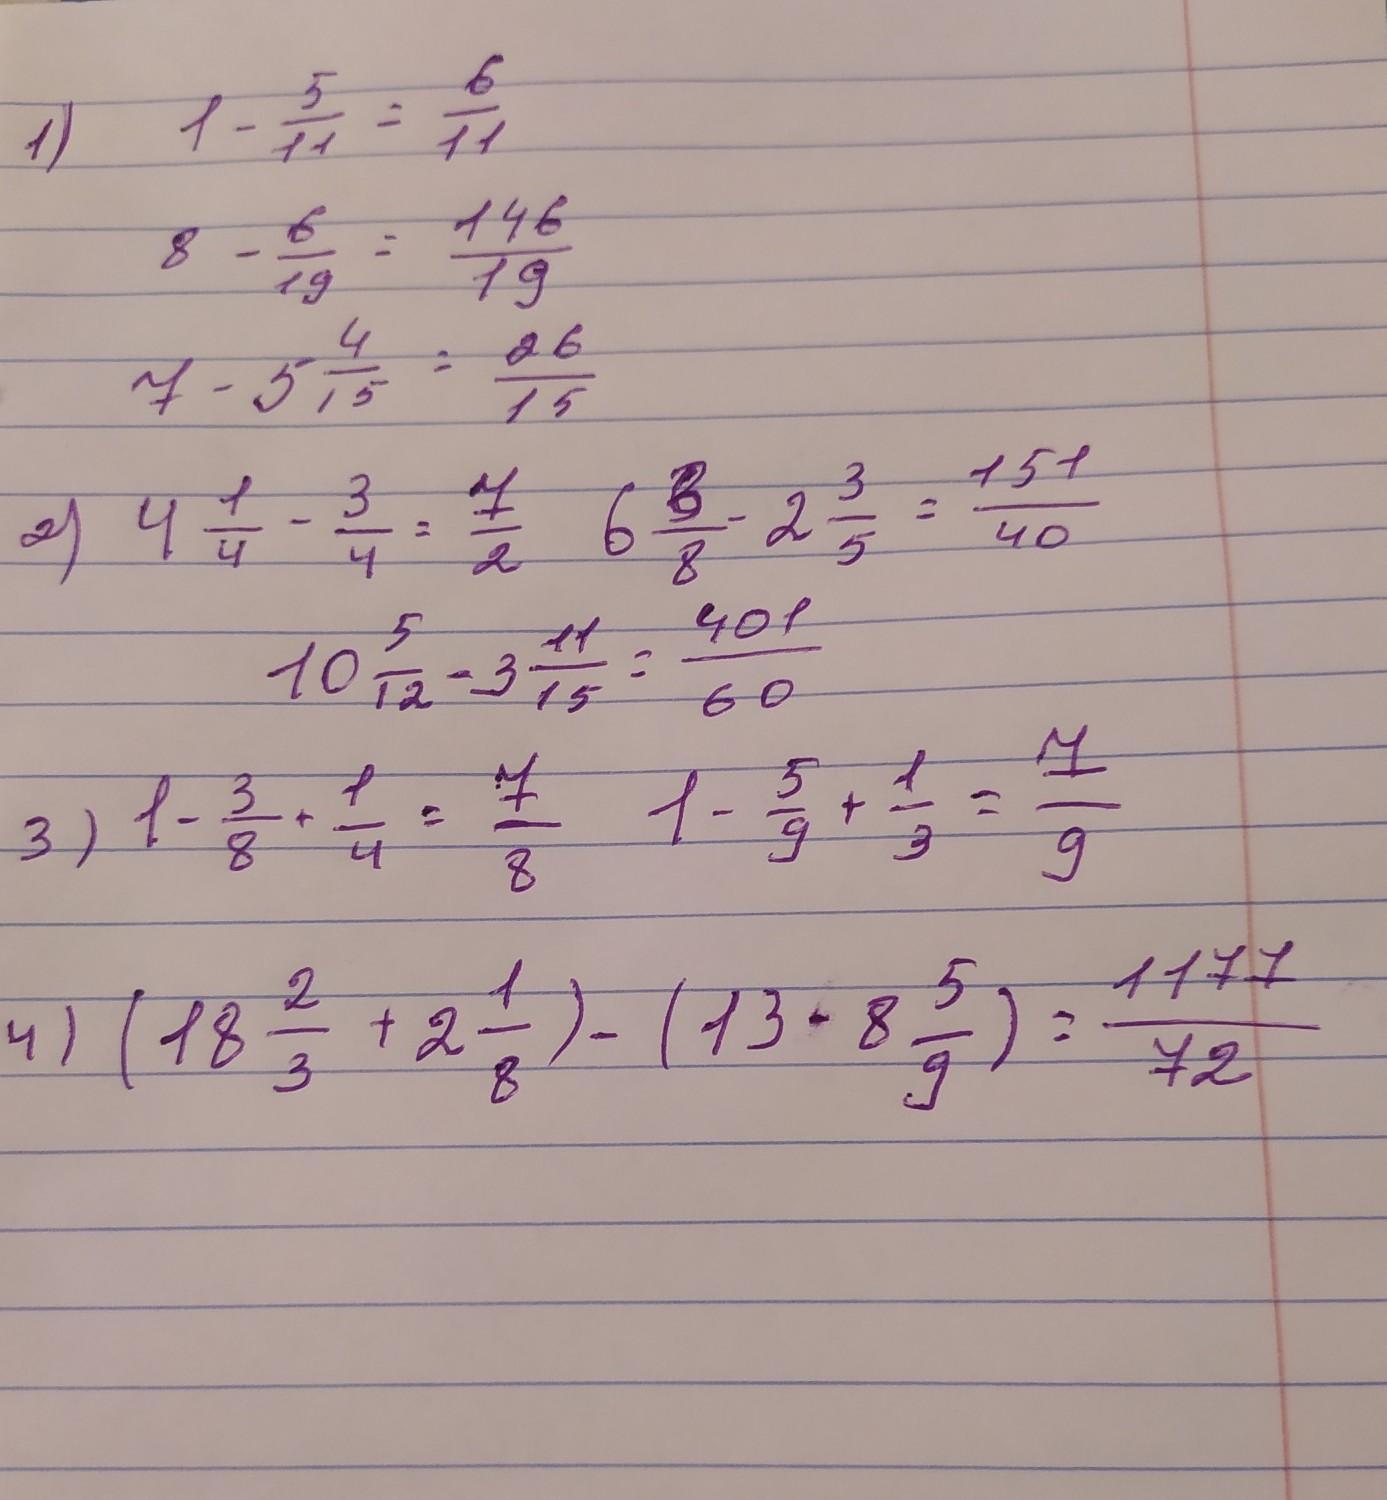 1) 1 - 5/11 = 6/11
8 - 6/19 = 146/19
7 - 5 4/15 = 26/15
2) 4 1/4 - 3/4 = 7/2 6 3/8 - 2 3/5 = 151/40
10 5/12 - 3 11/15 = 401/60
3) 1 - 3/8 + 1/4 = 7/8 1 - 5/9 + 1/3 = 7/9
4) (18 2/3 + 2 1/8) - (13 - 8 5/9) = 1177/72